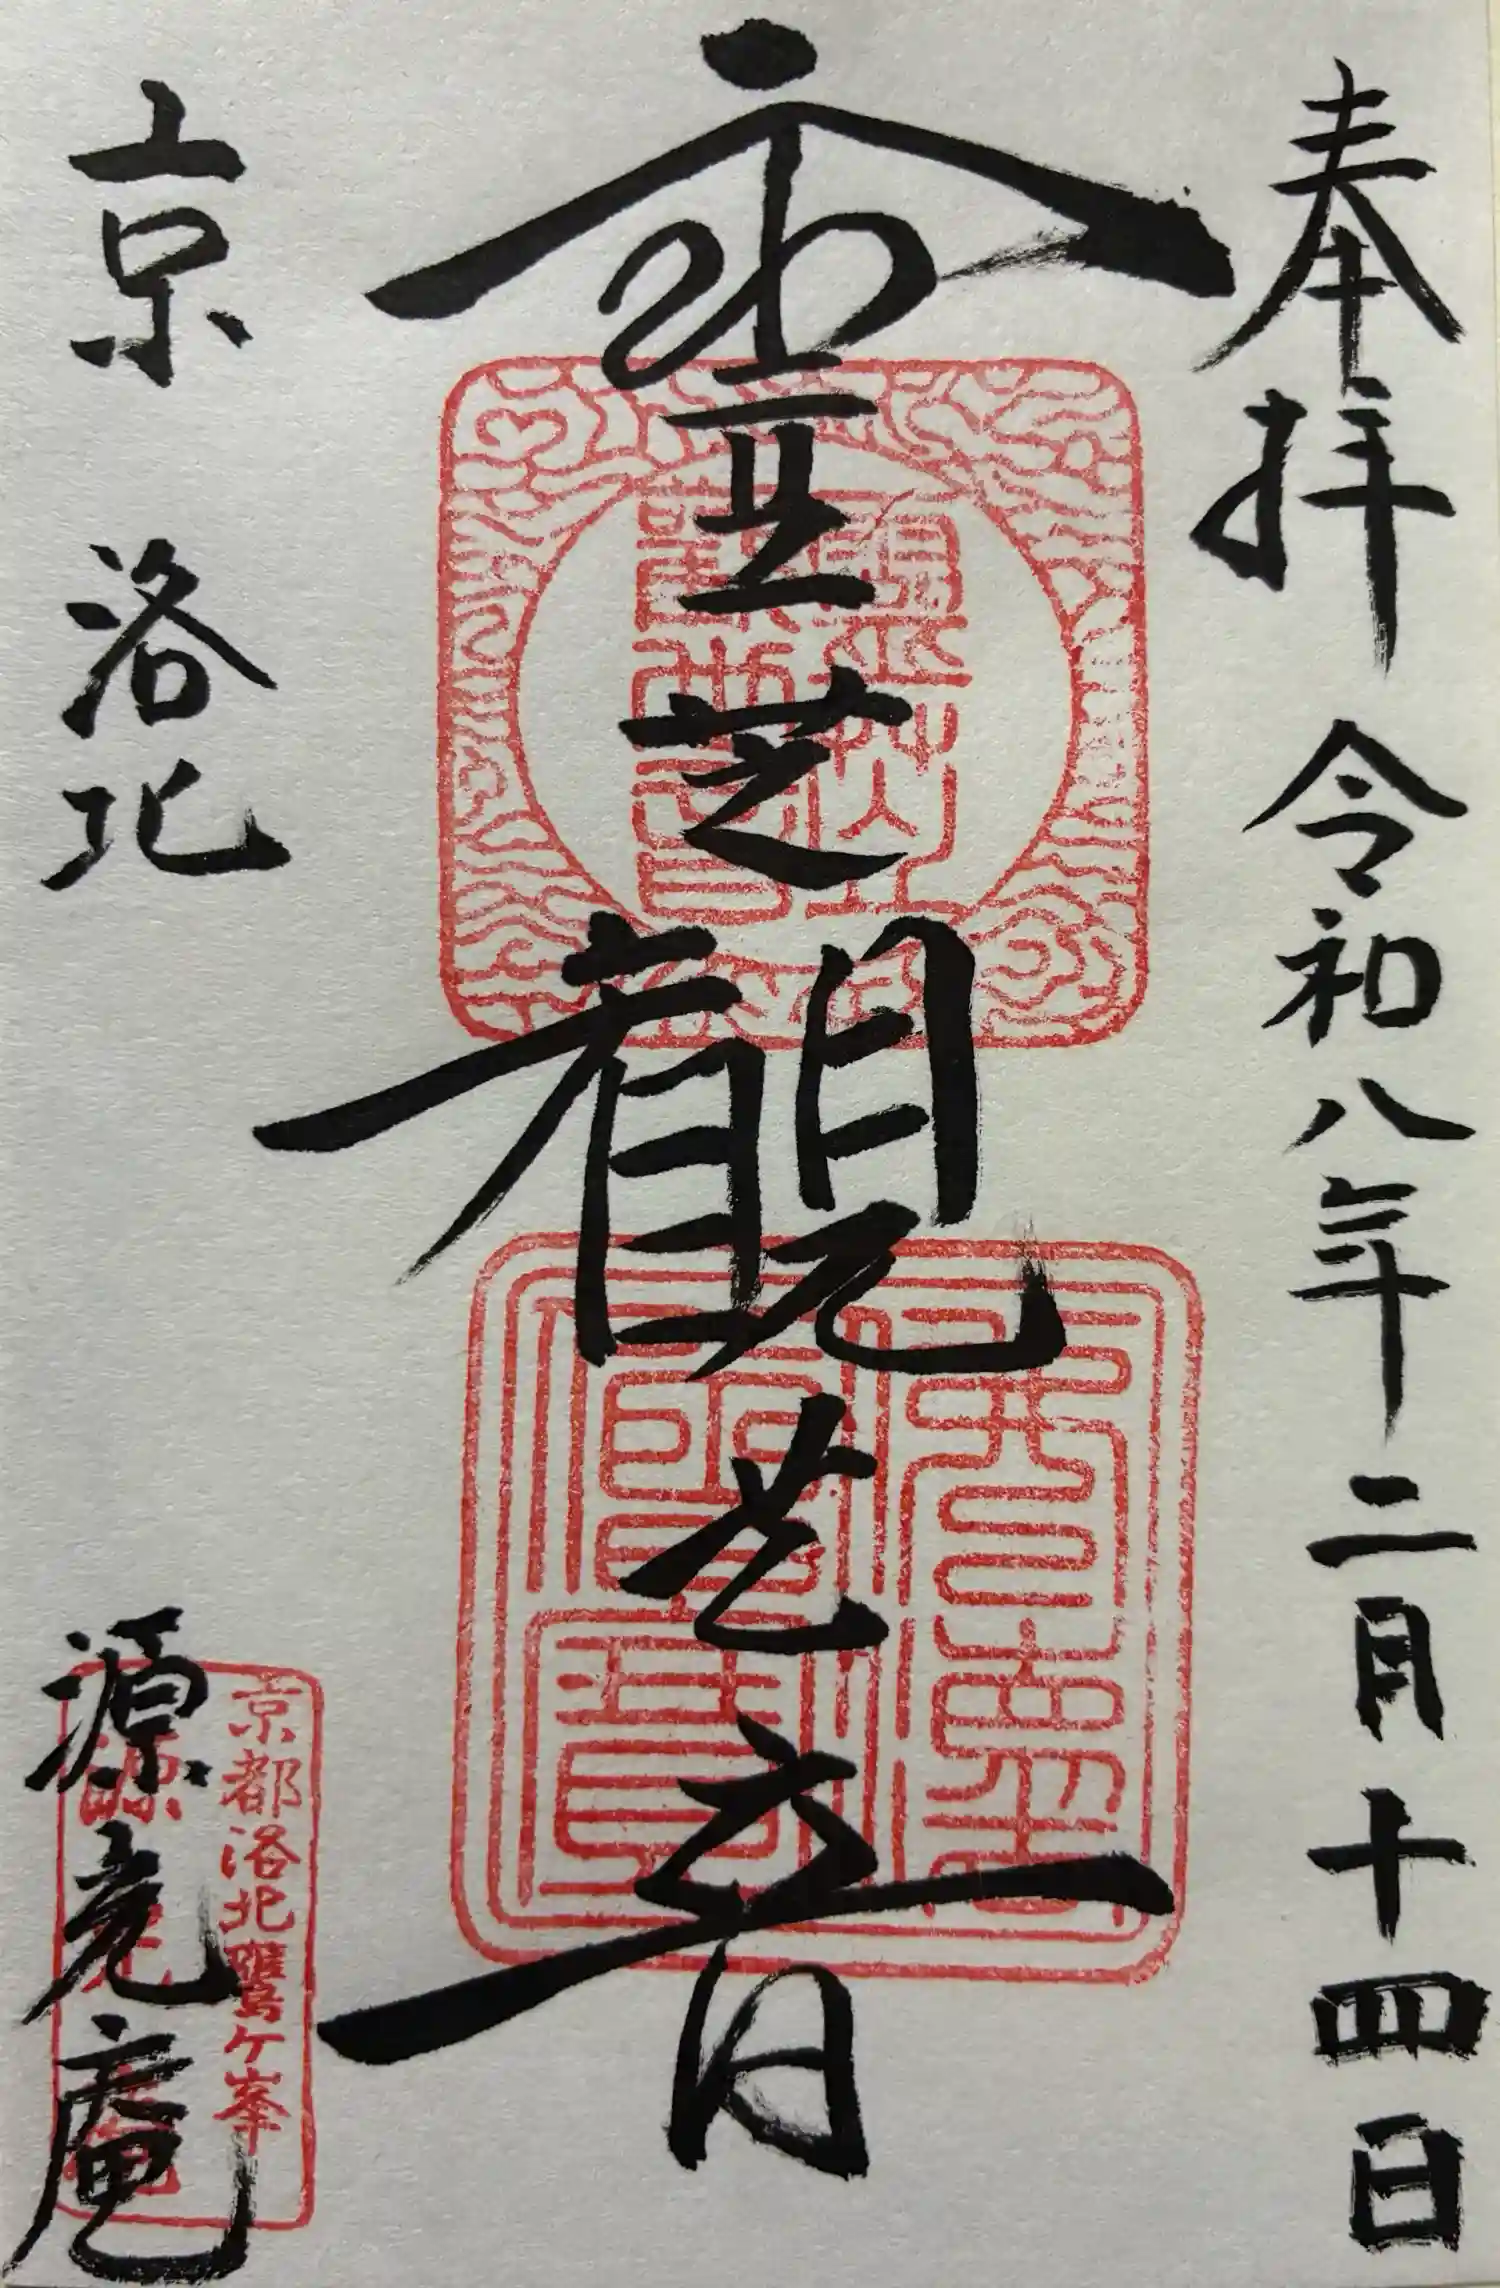 奉拝 令和八年二月十四日
霊芝観世音
京 洛北
源光庵
京都洛北鷹ケ峯
源光庵